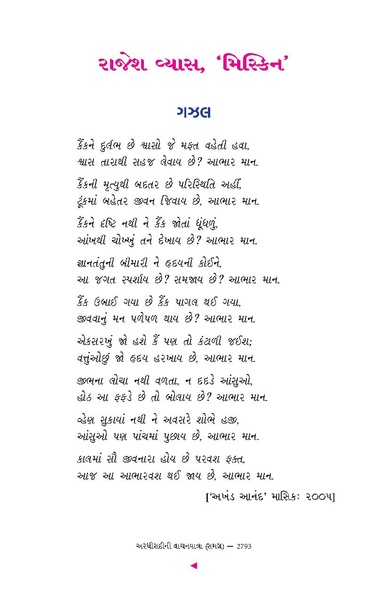 રાજેશ વ્યાસ, ‘મિસ્કિન’
ગઝલ
કૈંકને દુર્લભ છે શ્વાસો જે મફત વહેતી હવા,
શ્વાસ તારાથી સહજ લેવાય છે? આભાર માન.
કૈંકની મૃત્યુથી બદતર છે પરિસ્થિતિ અહીં,
ટૂંકમાં બહેતર જીવન જિવાય છે, આભાર માન.
કૈંકને દૃષ્ટિ નથી ને કૈંક જોતાં ધૂંધળું,
આંખથી ચોખ્ખું તને દેખાય છે? આભાર માન.
જ્ઞાનતંતુની બીમારી ને હૃદયની કોઈને,
આ જગત સ્પર્શાય છે? સમજાય છે? આભાર માન.
કૈંક ઉબાઈ ગયા છે કૈંક પાગલ થઈ ગયા,
જીવવાનું મન પળેપળ થાય છે? આભાર માન.
એકસરખું જો હશે કૈં પણ તો કંટાળી જઈશ;
વત્તુંઓછું જો હૃદય હરખાય છે, આભાર માન.
જીભના લોચા નથી વળતા, ન દદડે આંસુઓ,
હોઠ આ ફફડે છે તો બોલાય છે? આભાર માન.
વ્હેણ સુકાયાં નથી ને અવસરે શોભે હજી,
આંસુઓ પણ પાંચમાં પુછાય છે, આભાર માન.
કાલમાં સૌ જીવનારા હોય છે પરવશ ફક્ત,
આજ આ આભારવશ થઈ જાય છે, આભાર માન.
[‘અખંડ આનંદ’ માસિક: ૨૦૦૫]
અરધીસદીની વાચનયાત્રા (સમગ્ર) — 2793